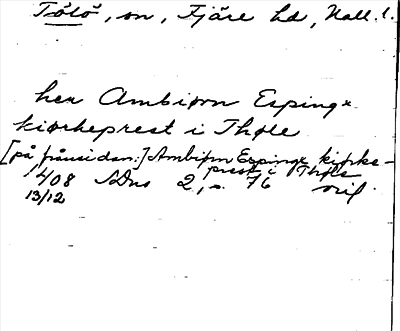 Tölö, sn, Fjäre hd, Hall. l.
her Ambiørn Esping
kiørkeprest i Thøle
[på frånsidan:] Ambiørn Esping kiørke-
prest i Thøle
1408 SDns 2, s. 76 orig.
13/12